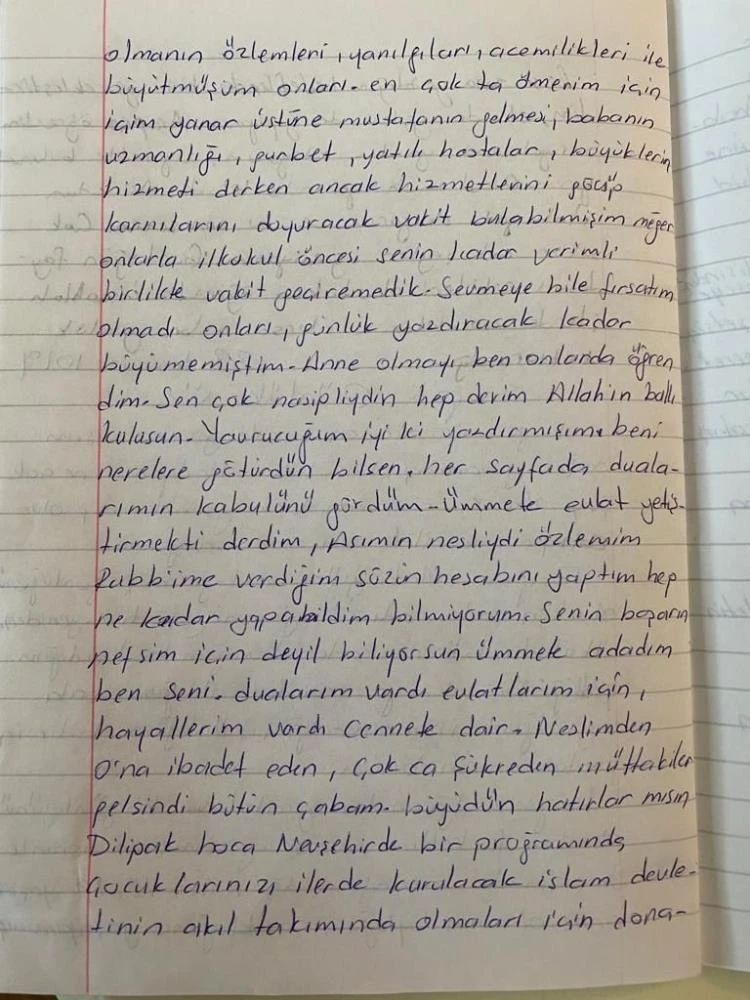 olmanın özlemleri, yanılgıları, acemilikleri ile
büyütmüşüm onları. en çok ta ömerim için
içim yanar üstüne mustafanın gelmesi, babanın
uzmanlığı, gurbet, yatılı hastalar, büyüklerin
hizmeti derken ancak hizmetlerini görüp
karnılarını doyuracak vakit bulabilmişim meğer
onlarla ilkokul öncesi senin kadar verimli
birlikte vakit geçiremedik. Sevmeye bile fırsatım
olmadı onları, günlük yazdıracak kadar
büyümemiştim. Anne olmayı ben onlarda öğren
dim. Sen çok nasipliydin hep derim Allah'ın ballı
kulusun. Yavrucuğum iyi ki yazdırmışım. beni
nerelere götürdün bilsen. her sayfada duala-
rımın kabulünü gördüm - Ümmete evlat yetiş-
tirmekti derdim, Asımın nesliydi özlemim
Rabb'ime verdiğim sözün hesabını yaptım hep
ne kadar yapabildim bilmiyorum. Senin başarın
nefsim için deyil biliyorsun ümmete adadım
ben seni. dualarım vardı evlatlarım için,
hayallerim vardı Cennete dair. Neslimden
O'na ibadet eden, çok ca şükreden müttakiler
gelsindi bütün çabam. büyüdün hatırlar mısın
Dilipak hoca Nevşehirde bir programında
çocuklarınızı ilerde kurulacak islam devle-
tinin akıl takımında olmaları için dona-